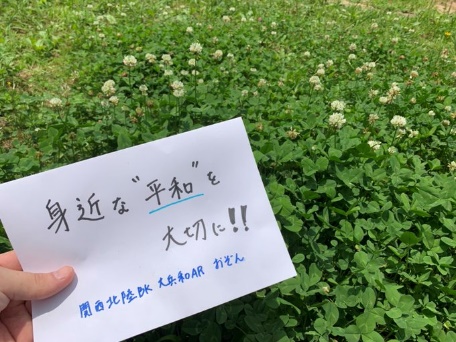 身近な"平和"を
大切に!!
関西北陸BK 大兵和AR おぞん